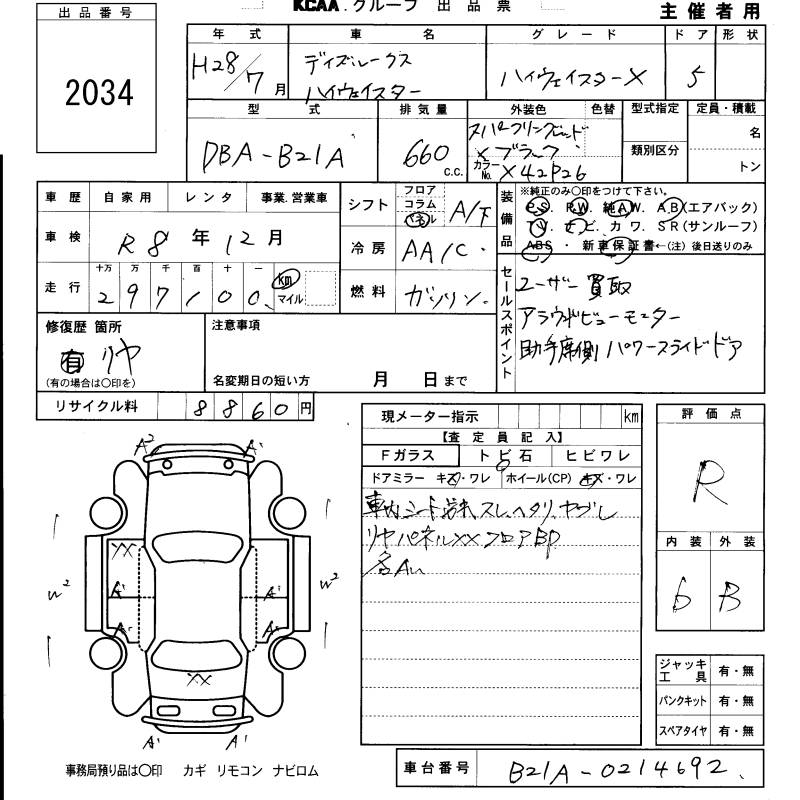 KCAA.グループ 出品票
主催者用
出品番号
2034
年式 車名 グレード ドア 形状
H28/7月 ディズルークス ハイウェイスター ハイウェイスターX 5
型式 排気量 外装色 色替 型式指定 定員・積載
DBA-B21A 660 c.c. ×ブラック カラーNo. X42P26 類別区分 名 トン
車歴 自家用 レンタ 事業.営業車
車検 R8年12月
走行 十万 万 千 百 十 一
297100 km マイル
シフト フロア コラム パネル A/T
冷房 AA/C
燃料 ガソリン.
装備品 ※純正のみ〇印をつけて下さい。
P.S. P.W. 純A.W. A.B(エアバック)
T V. ナ ビ. カ ワ. S R(サンルーフ)
ABS ・ 新車保証書←(注) 後日送りのみ
セールスポイント
ユーザー買取
アラウンドビューモニター
助手席側パワースライドドア
修復歴 箇所
有 リヤ
(有の場合は〇印を)
注意事項
名変期日の短い方 月 日まで
リサイクル料 8860円
現メーター指示 km
【査定員記入】
Fガラス トビ石 ヒビワレ
ドアミラー キズ・ワレ ホイール(CP) キズ・ワレ
車内シート汚れ スレ、ヘタリ、ヤブレ
リヤパネルXX フロアBP
各Au
評価点
R
内装 外装
6 B
A2 A'
XX
A' A'
A' A'
W2 W2
XX
A' A'
ジャッキ 工具 有・無
パンクキット 有・無
スペアタイヤ 有・無
事務局預り品は〇印 カギ リモコン ナビロム
車台番号 B21A-0214692